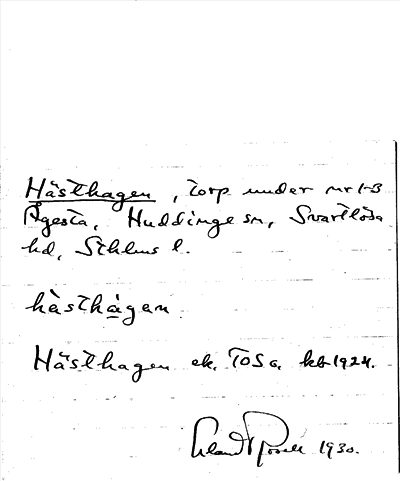 Hästhagen, torp under nr 1-3
Ågesta, Huddinge sn, Svartlösa
hd, Sthlms l.
hästhagen
Hästhagen ek. TOSa. kb 1924.
1930.